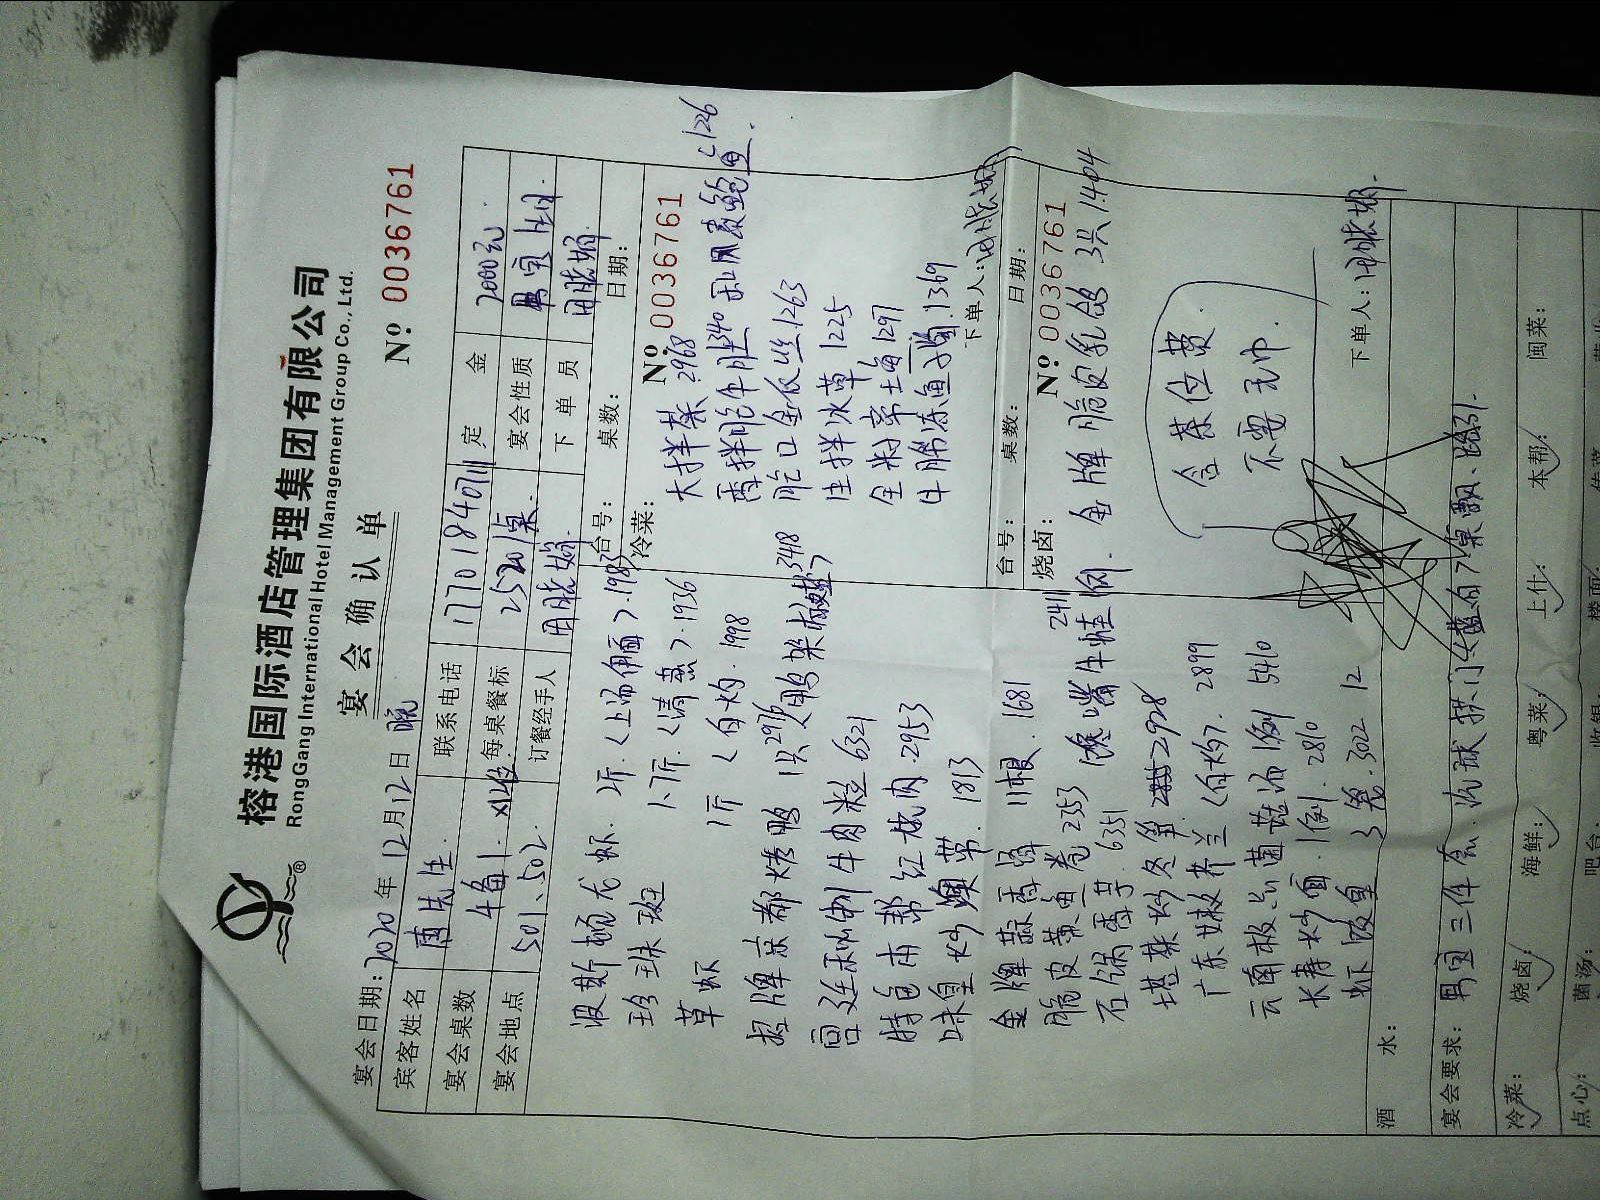 榕港国际酒店管理集团有限公司
RongGang International Hotel Management Group Co., Ltd.
宴会确认单
№ 0036761
宴会日期: 2020年12月12日 晚
宾客姓名 唐先生. 联系电话 定金 2000元
宴会桌数 4备1. 每桌餐标 2520/桌. 宴会性质 男宝 生日.
宴会地点 501、502. 订餐经手人 周晓娟 下单员 周晓娟
波斯顿龙虾. <上汤焗面>.
珍珠斑 <清蒸>.1936
草虾 1斤 <白灼.1998
招牌京都烤鸭 1只 2976 <鸭架椒盐> 3418
牛肉粒 6321
特色本帮红烧肉.2953
味皇炒澳带. 1813
金牌蒜香骨 11根.1681
脆皮黄鱼卷 2353
馋嘴牛蛙 2411
石锅香芋.6351
塔菜炒冬笋 2938
广东嫩芥兰 <白灼>. 2899
云南极品菌菇汤 1例 5410
长寿炒面.1例. 2810
虾饺皇 3笼.3022 12
台号: 桌数: 日期:
冷菜: № 0036761
大拌菜.2968
香拌脆牛肚 1340
1226
脆口金衣丝.1263
生拌冰草 1225
1297
牛腩冻鱼子酱.1369
下单人: 周晓娟
台号: 桌数: 日期:
烧卤: № 0036761
金牌脆皮乳鸽 3只 1404
含茶位费.
不需毛巾.
下单人: 周晓娟.
酒水:
宴会要求: 男宝三件套.汽球拱门 桌飘、路引.
冷菜: 烧卤: 海鲜: 粤菜: 上什: 本帮: 闽菜:
点心: 菌汤: 吧台: 收银: 楼面: